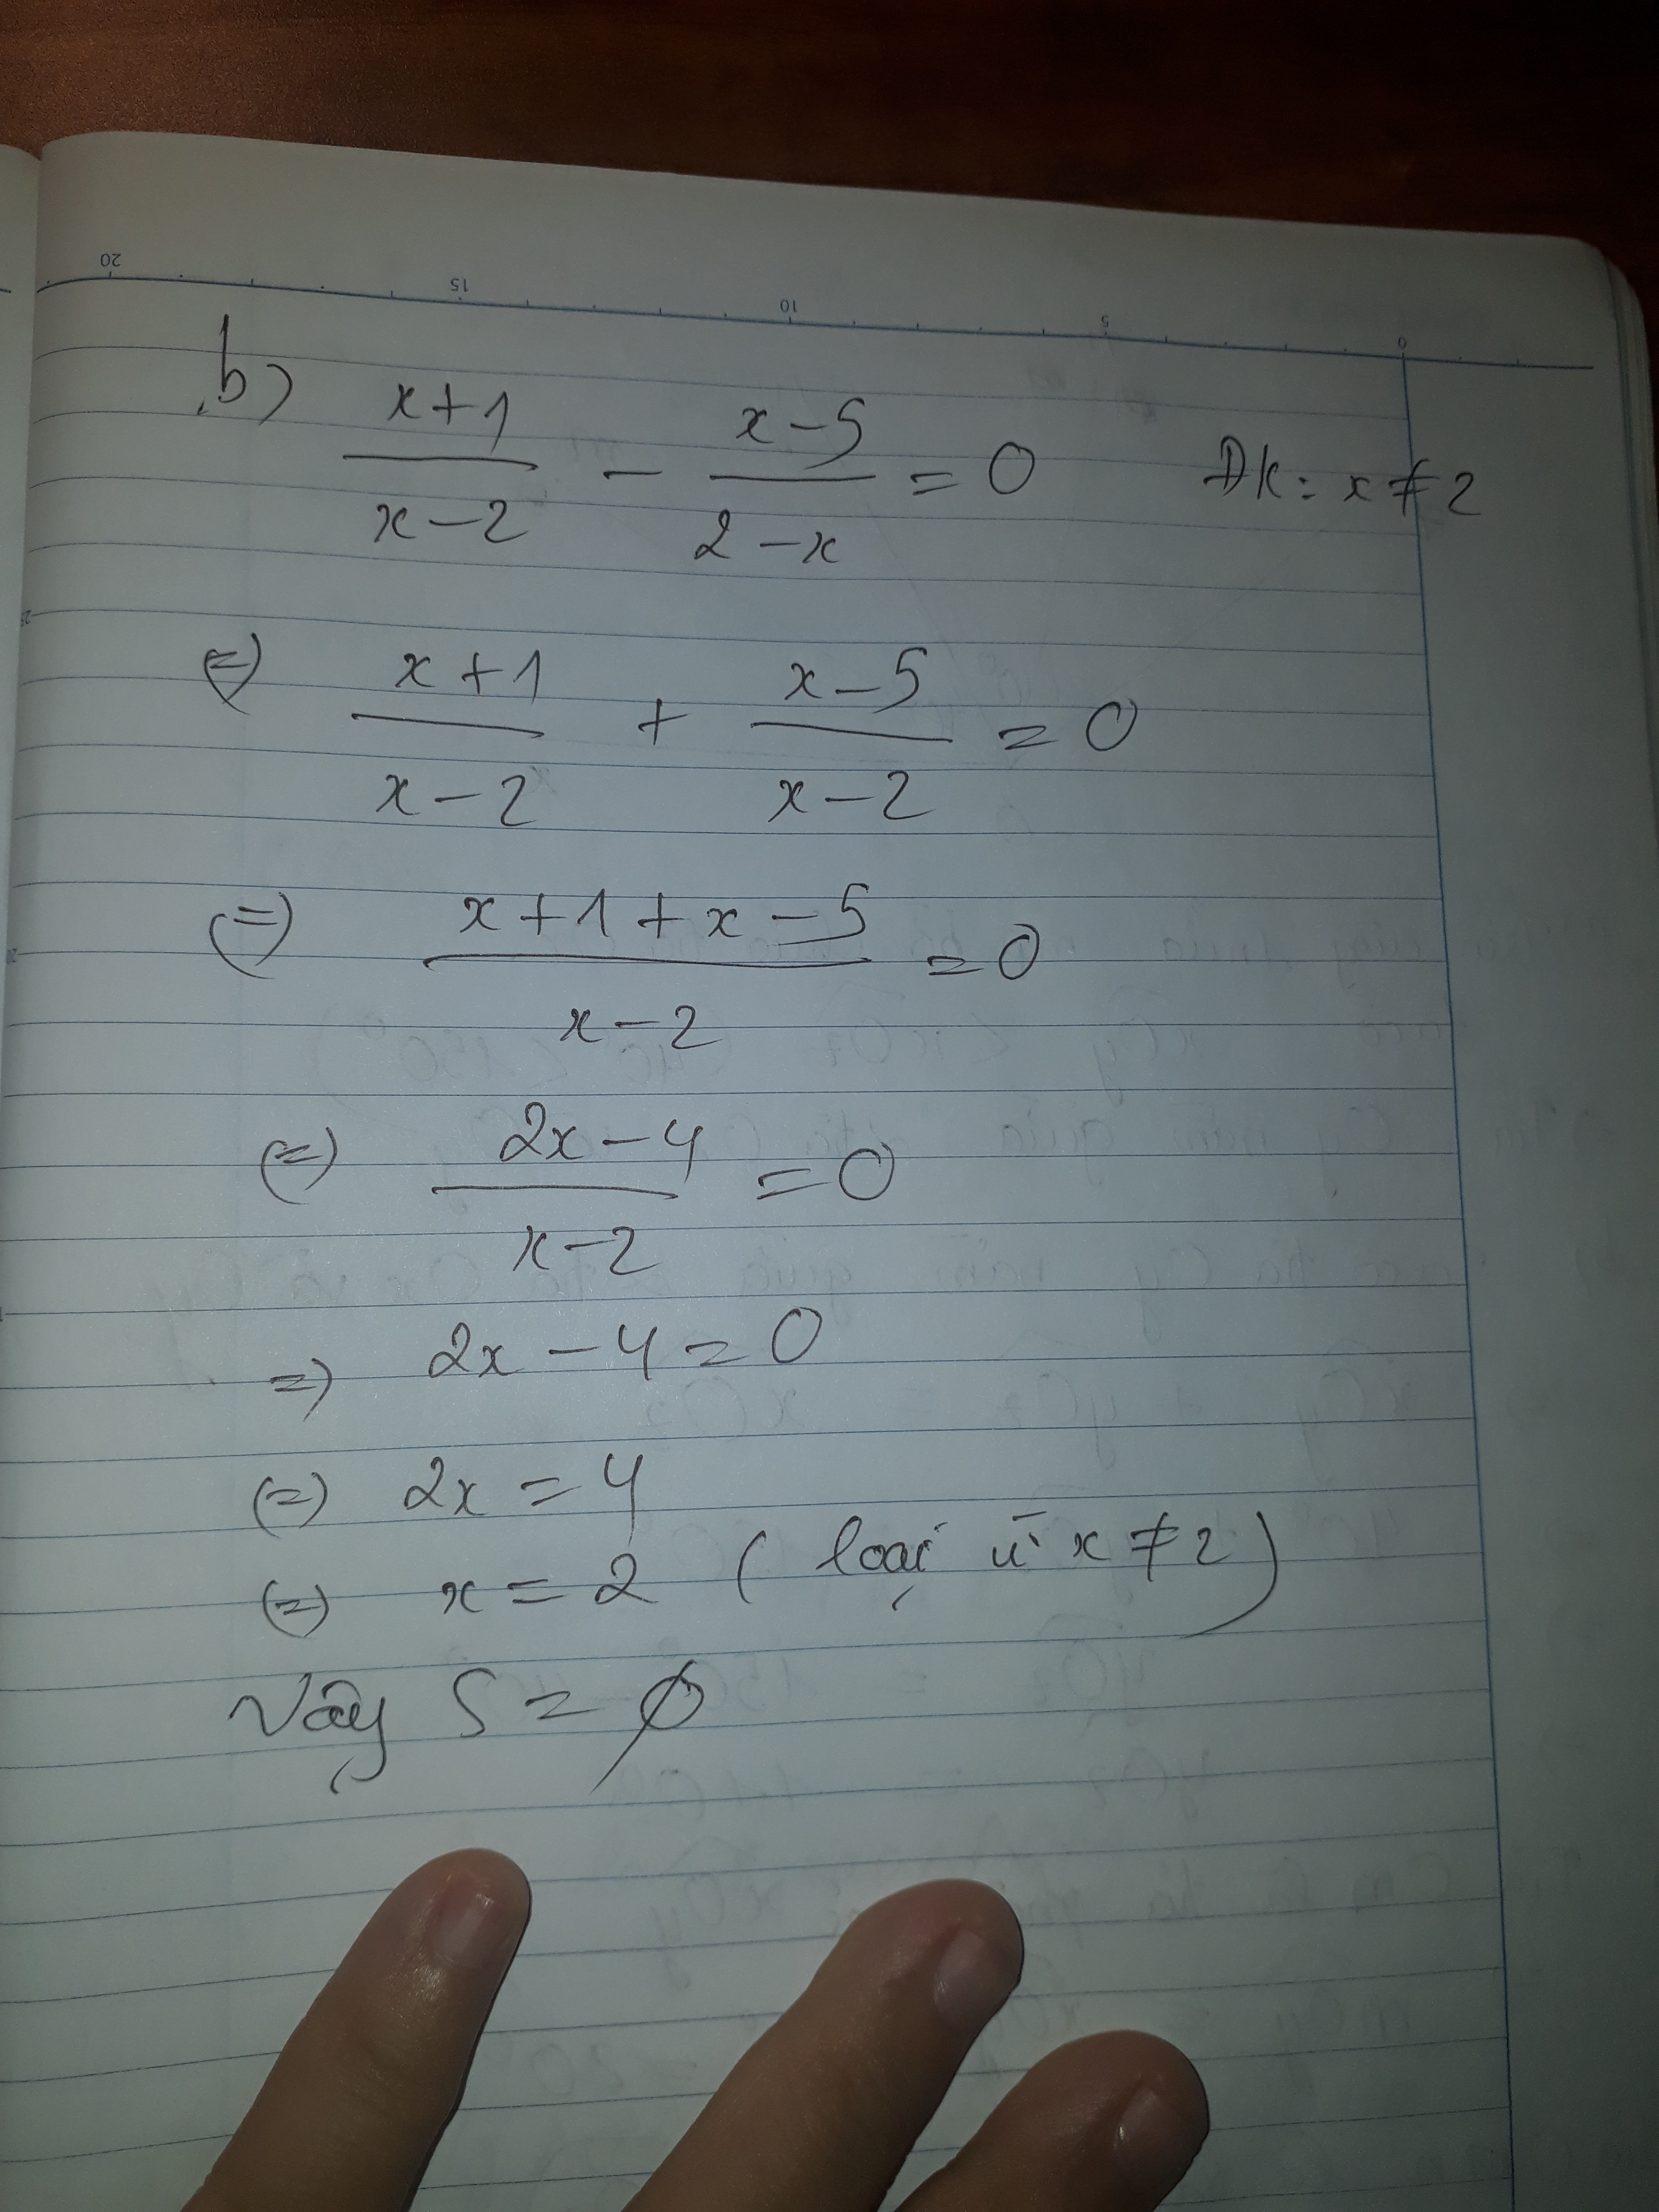 20 15 10 5 0
b) \frac{x+1}{x-2} - \frac{x-5}{2-x} = 0 ĐK: x ≠ 2
⇔ \frac{x+1}{x-2} + \frac{x-5}{x-2} = 0
⇔ \frac{x+1+x-5}{x-2} = 0
⇔ \frac{2x-4}{x-2} = 0
⇒ 2x - 4 = 0
⇔ 2x = 4
⇔ x = 2 ( loại vì x ≠ 2 )
Vậy S = ∅